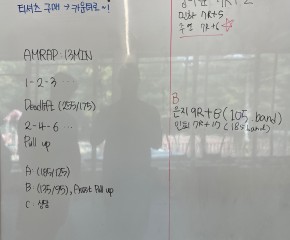 티셔츠 구매 → 카운터로~!
AMRAP 13MIN
1-2-3 ···
Deadlift (255/175)
2-4-6 ···
Pull up
A : (185/125)
B : (135/95),
Pull up
C :
7R+5
7R+6 ☆
B
은지 9R+8 (105 band)
7R+17 (185 band)